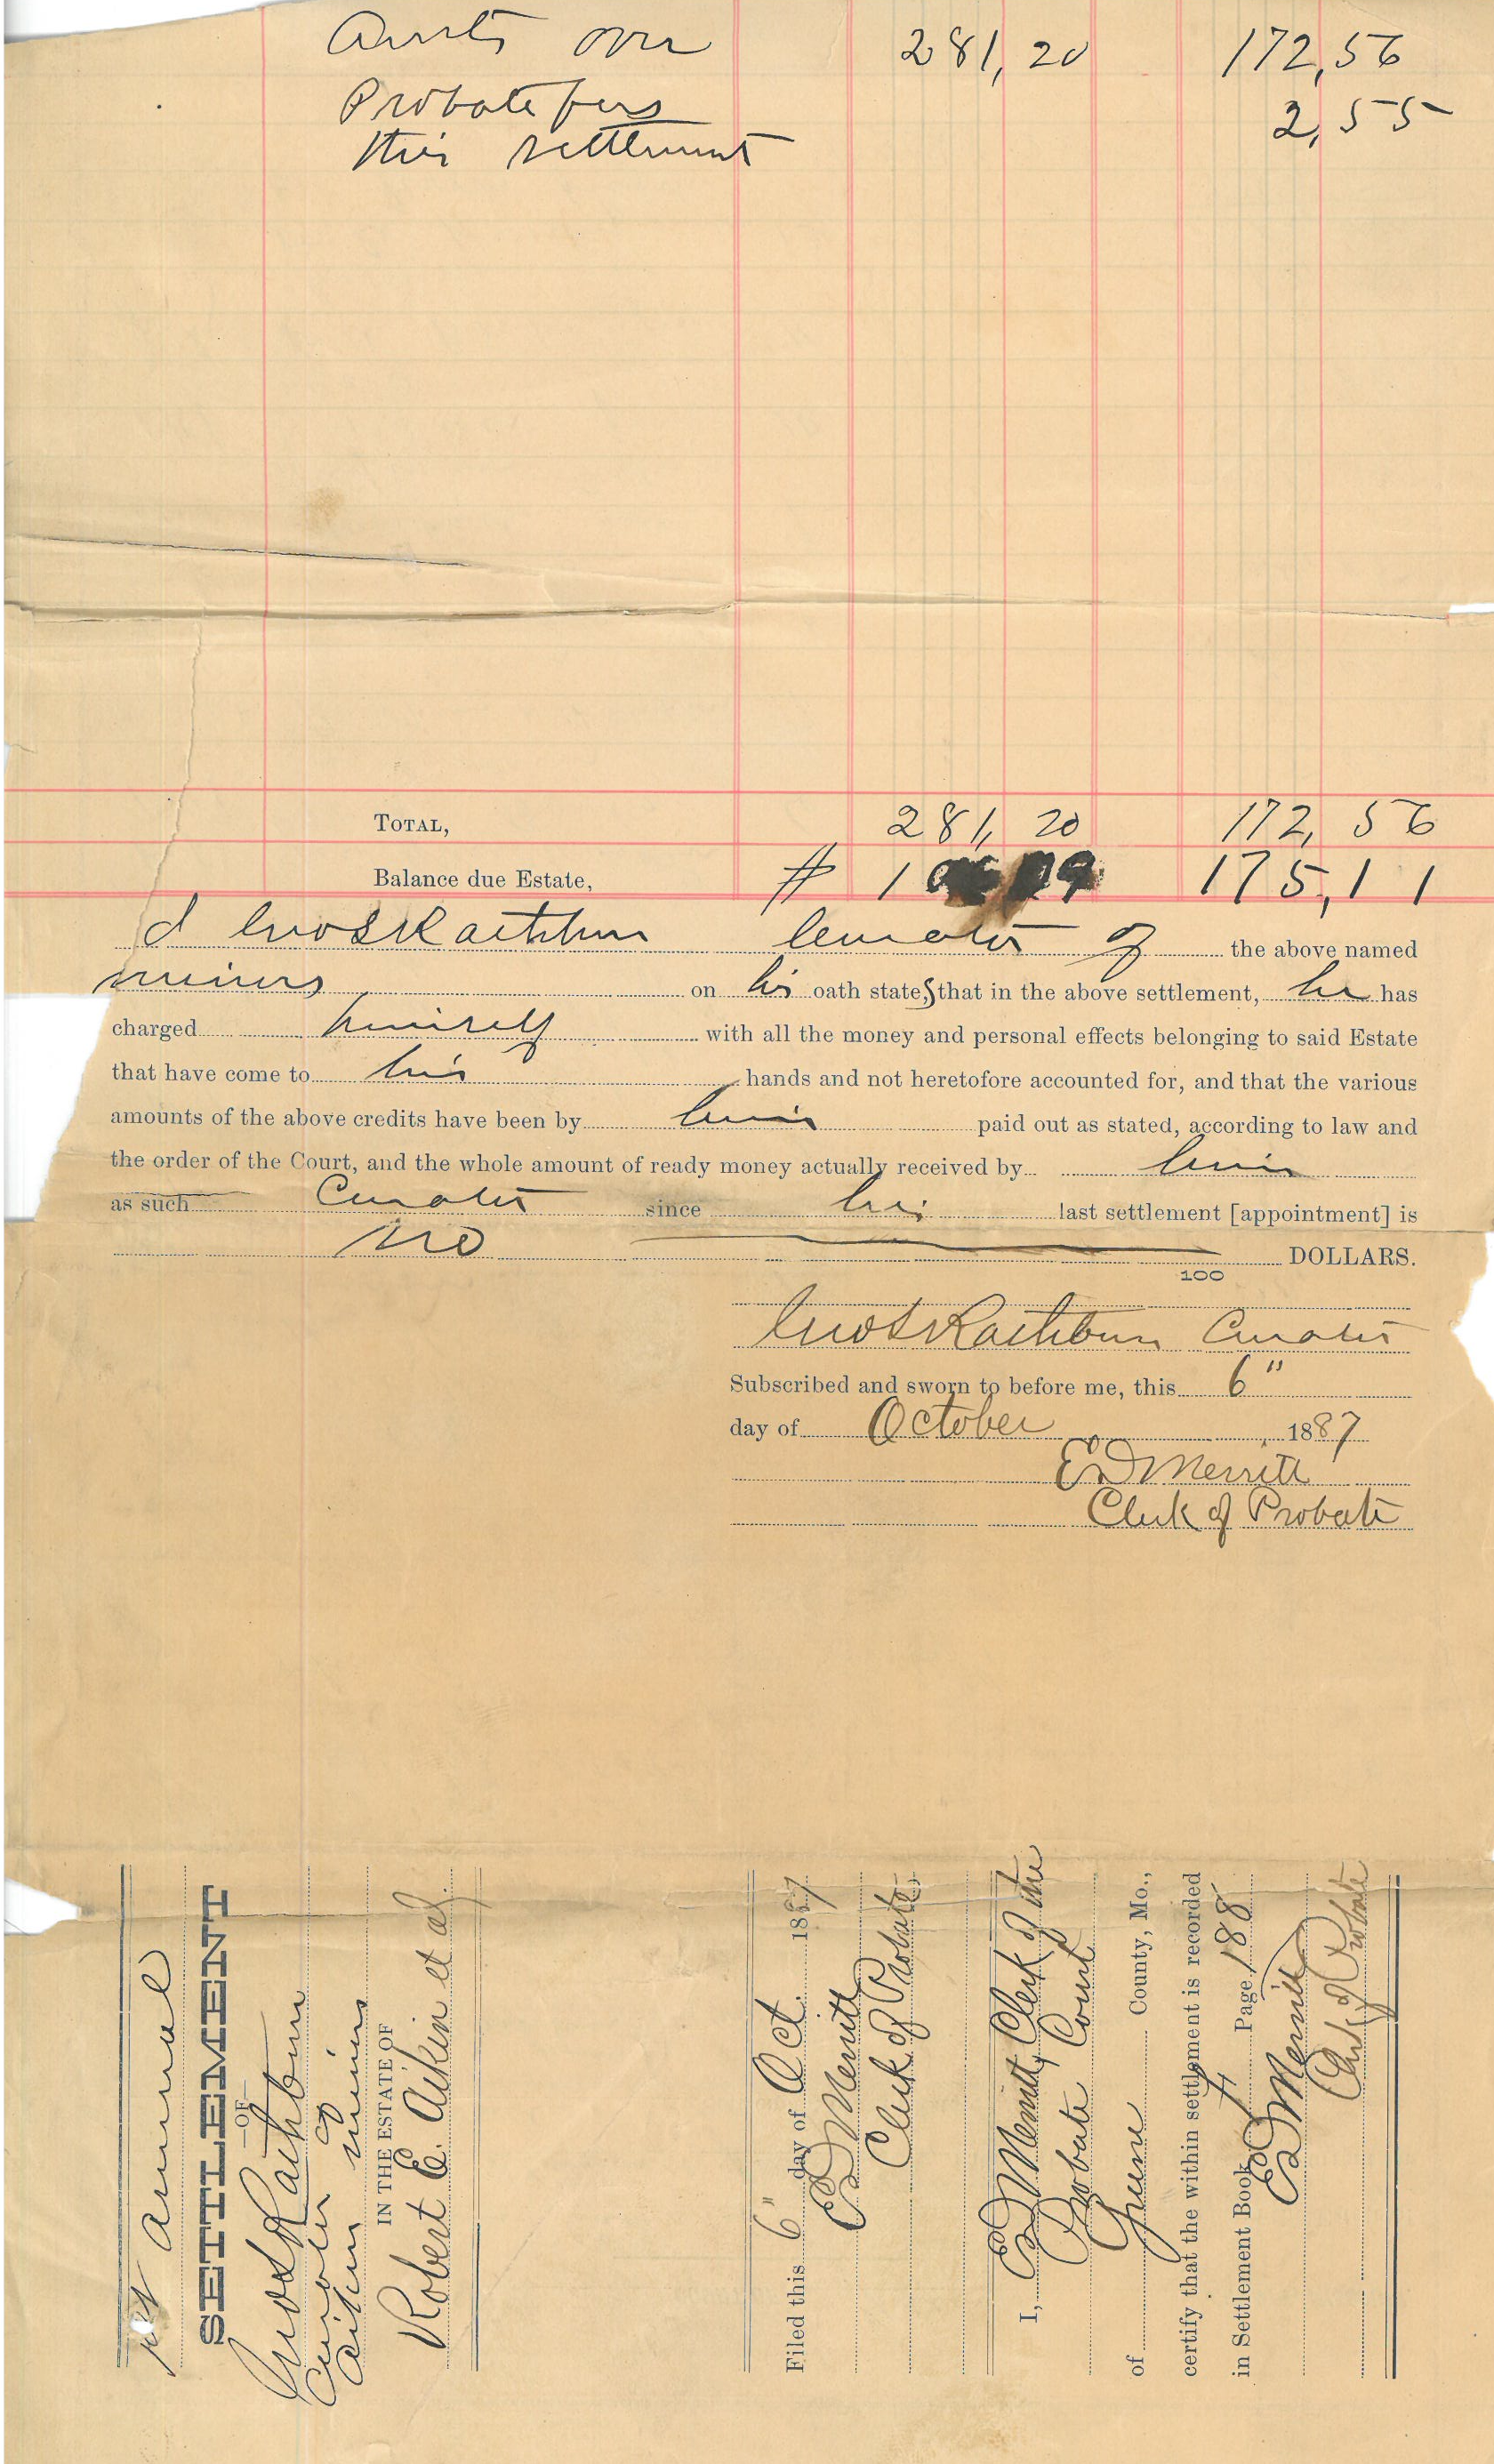 Amts over 281,20 172,56
Probate fees 2,55
this settlement
TOTAL, 281,20 172,56
Balance due Estate, # 175,11
I Rathbun Curator of the above named
minors on his oath states that in the above settlement, he has
charged himself with all the money and personal effects belonging to said Estate
that have come to his hands and not heretofore accounted for, and that the various
amounts of the above credits have been by him paid out as stated, according to law and
the order of the Court, and the whole amount of ready money actually received by him
as such Curator since his last settlement [appointment] is
no DOLLARS.
100
Rathbun Curator
Subscribed and sworn to before me, this 6"
day of October 1887
ED Merritt
Clerk of Probate
1st annual
SETTLEMENT
—OF—
Rathbun
Curator of
Aikin minors
IN THE ESTATE OF
Robert E. Aikin et al.
Filed this 6" day of Oct. 1887
ED Merritt
Clerk of Probate
I, ED Merritt, Clerk of the
Probate Court
of Greene County, Mo.,
certify that the within settlement is recorded
in Settlement Book Page 188
ED Merritt
Clerk of Probate